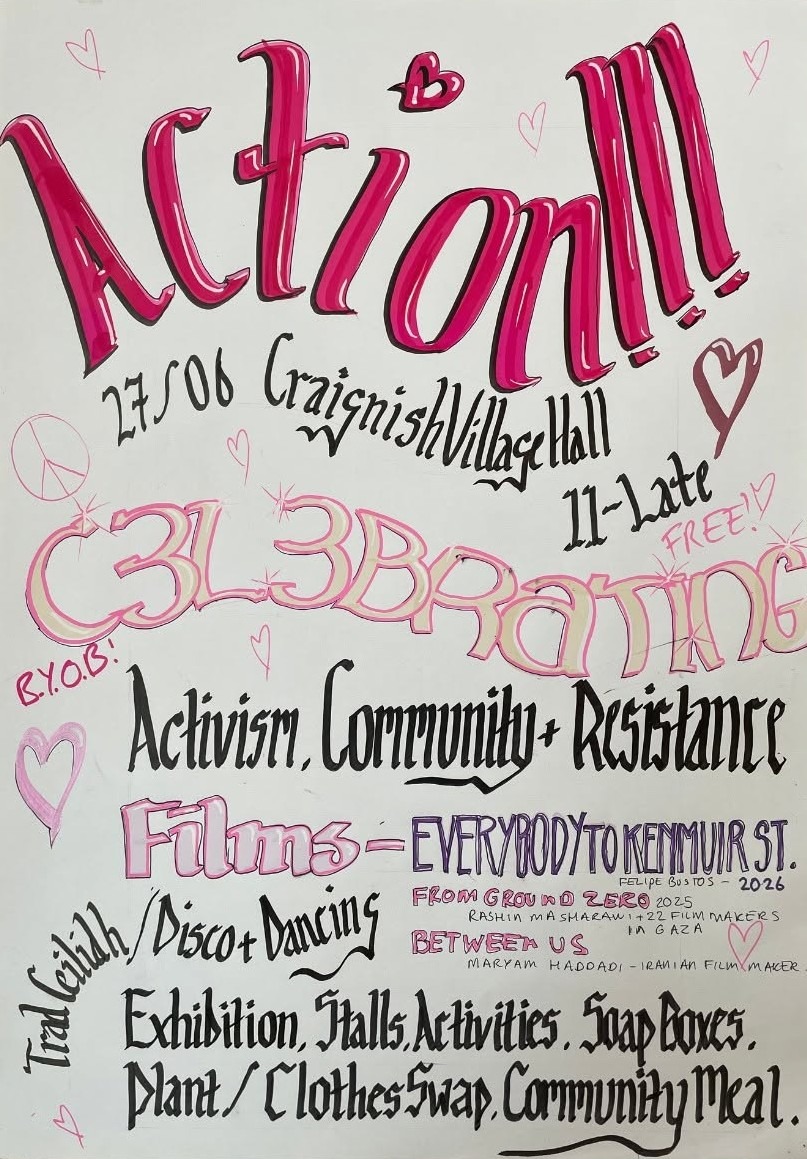 Action!!!
27/06 Craignish Village Hall
11-Late
FREE!
C3L3BRaTING
B.Y.O.B!
Activism, Community + Resistance
Films - EVERYBODY TO KENMUIR ST.
FELIPE BUSTOS - 2026
FROM GROUND ZERO 2025
RASHIN MASHARAWI + 22 FILM MAKERS
IN GAZA
BETWEEN US
MARYAM HADDADI - IRANIAN FILM MAKER.
Trad Ceilidh / Disco + Dancing
Exhibition, Stalls, Activities, Soap Boxes.
Plant / Clothes Swap, Community Meal.